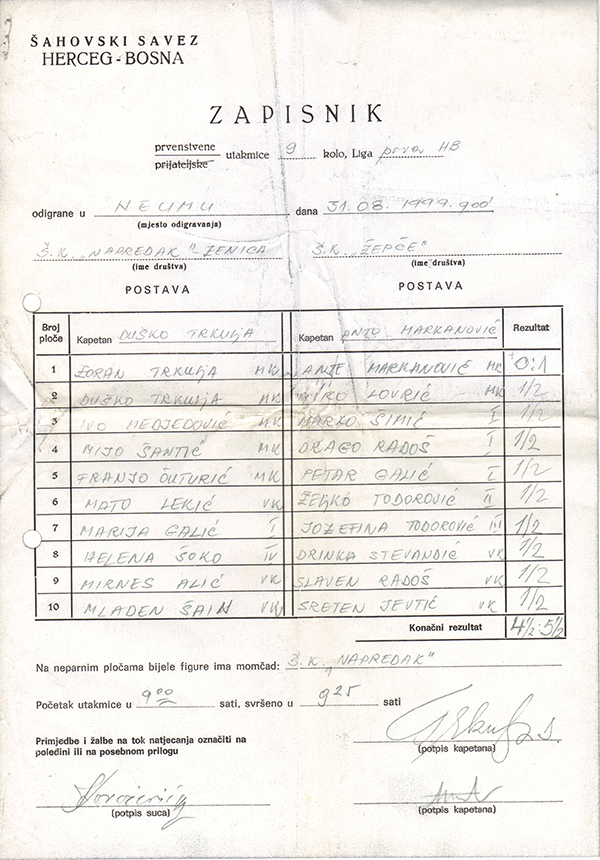 ŠAHOVSKI SAVEZ
HERCEG-BOSNA
ZAPISNIK
prvenstvene
prijateljske
utakmice 9 kolo, Liga prva HB
odigrane u NEUMU dana 31.08.1999. 900
(mjesto odigravanja)
Š.K. „NAPREDAK" ZENICA Š.K. „ŽEPČE"
(ime društva) (ime društva)
POSTAVA POSTAVA
Broj ploče Kapetan DUŠKO TRKULJA Kapetan ANTO MARKANOVIĆ Rezultat
1 ZORAN TRKULJA MK ANTE MARKANOVIĆ MK 0:1
2 DUŠKO TRKULJA MK MIRO LOVRIĆ MK 1/2
3 IVO MEDJEDOVIĆ MK MARKO ŠIMIĆ I 1/2
4 MIJO ŠANTIĆ MK DRAGO RADOŠ I 1/2
5 FRANJO ČUTURIĆ MK PETAR GALIĆ I 1/2
6 MATO LEKIĆ VK ŽELJKO TODOROVIĆ II 1/2
7 MARIJA GALIĆ I JOZEFINA TODOROVIĆ III 1/2
8 HELENA ŠOKO IV DRINKA STEVANDIĆ VK 1/2
9 MIRNES ALIĆ VK SLAVEN RADOŠ VK 1/2
10 MLADEN ŠAIN VK SRETEN JEVTIĆ VK 1/2
Konačni rezultat 4½:5½
Na neparnim pločama bijele figure ima momčad: Š.K. „NAPREDAK"
Početak utakmice u 9 00 sati, svršeno u 9 25 sati
Primjedbe i žalbe na tok natjecanja označiti na
poleđini ili na posebnom prilogu
(potpis kapetana)
(potpis suca) (potpis kapetana)